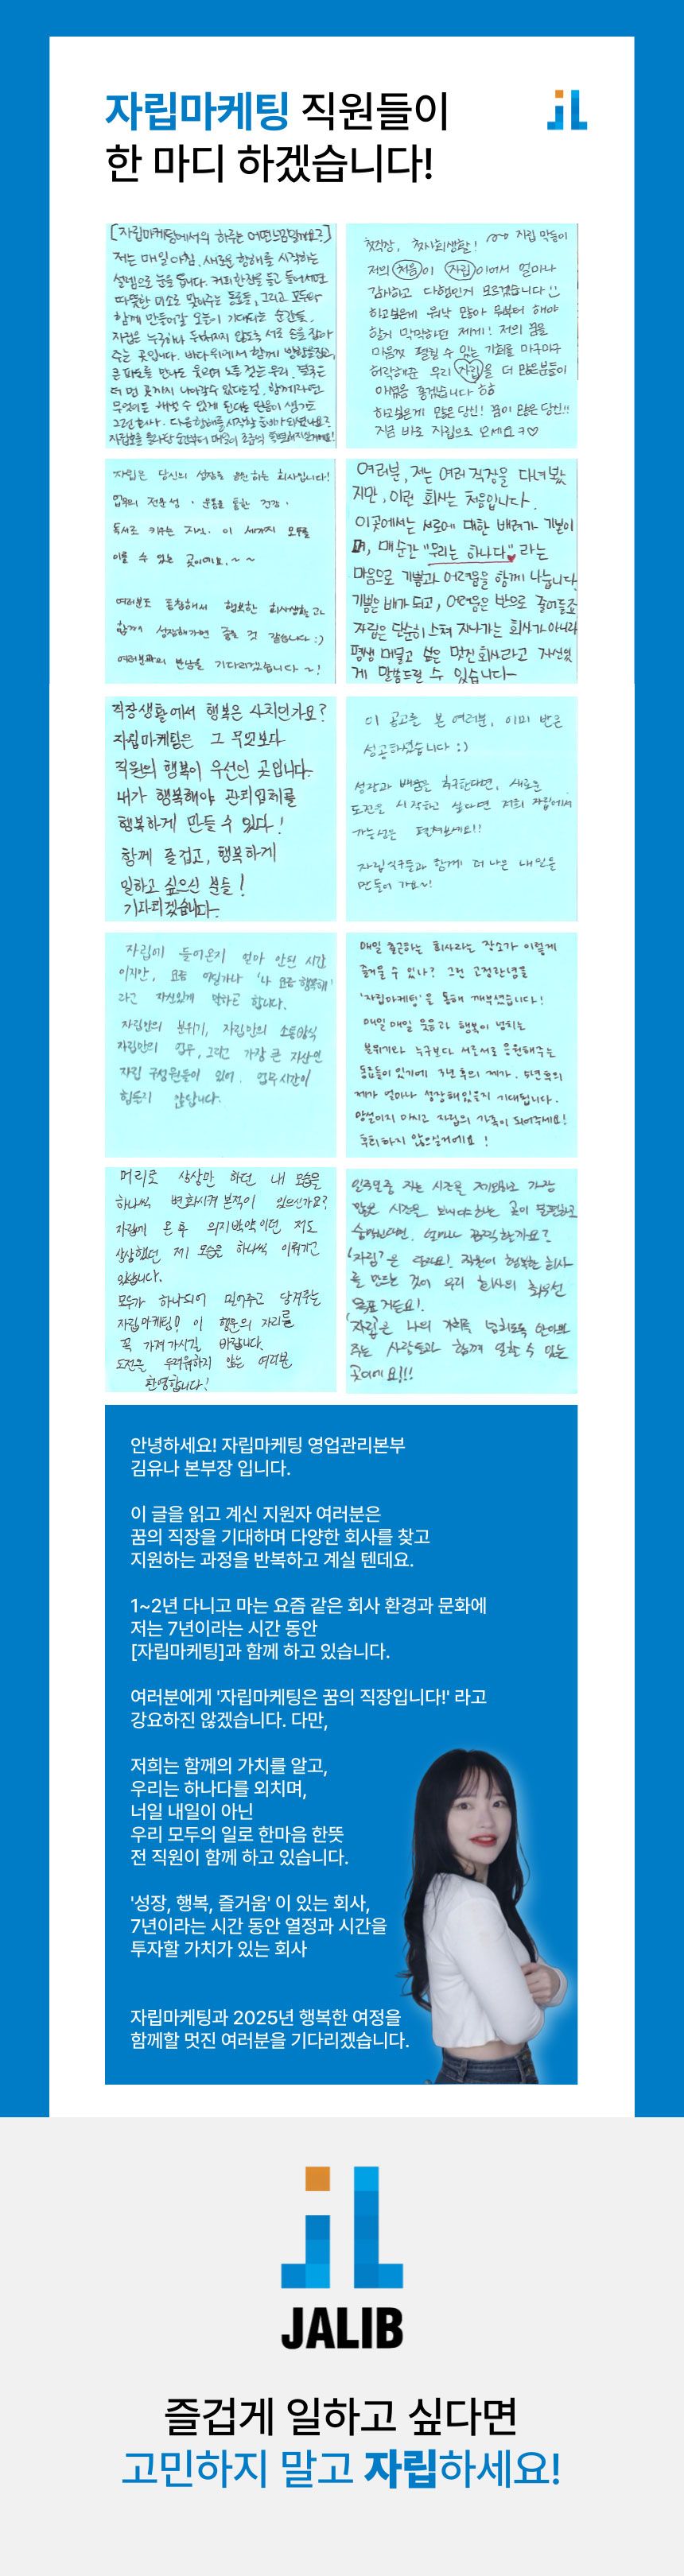 자립마케팅 직원들이
한 마디 하겠습니다!
[자립마케팅에서의 하루는 어떤느낌일까요?]
저는 매일 아침, 새로운 항해를 시작하는
설렘으로 눈을 뜹니다. 커피한잔을 들고 들어서면
따뜻한 미소로 맞아주는 동료들, 그리고 모두와
함께 만들어갈 오늘이 기대되는 순간들.
자립은 누구하나 뒤쳐지지 않도록 서로 손을 잡아
주는 곳입니다. 바다위에서 함께 방향을잡고,
큰 파도를 만나도 웃으며 노를 젓는 우리. 결국은
더 먼 곳까지 나아갈수 있다는것. 함께라면
무엇이든 해낼 수 있게 된다는 믿음이 생기는
그런 회사. 다음 항해를 시작할 준비가 되셨나요?
자립호를 올라탄 순간부터 매일이 조금씩 특별해지실거예요!
첫직장, 첫사회생활! 자립 막둥이
저의 처음이 자립이어서 얼마나
감사하고 다행인지 모르겠습니다
하고싶은게 워낙 많아 무부터 해야
할지 막막하던 제게! 저의 꿈을
마음껏 펼칠 수 있는 기회를 마구마구
허락해준 우리 자립을 더 많은분들이
아셨음 좋겠습니다 ㅎㅎ
하고싶은게 많은 당신! 꿈이 많은 당신!!
지금 바로 자립으로 오세요 ㅋ♡
자립은 당신의 성장을 응원하는 회사입니다!
업무의 전문성 · 운동을 통한 건강 ·
독서로 키우는 지식. 이 세가지 모두를
이룰 수 있는 곳이에요.~~
여러분도 동참해서 행복한 회사생활과
함께 성장해가면 좋을 것 같습니다 :)
여러분과의 만남을 기다리겠습니다~!
여러분, 저는 여러 직장을 다녀봤
지만, 이런 회사는 처음입니다.
이곳에서는 서로에 대한 배려가 기본이
며, 매순간 "우리는 하나다"♥ 라는
마음으로 기쁨과 어려움을 함께 나눕니다
기쁨은 배가 되고, 어려움은 반으로 줄어들죠
자립은 단순히 스쳐 지나가는 회사가 아니라
평생 머물고 싶은 멋진 회사라고 자신있
게 말씀드릴 수 있습니다~
직장생활에서 행복은 사치인가요?
자립마케팅은 그 무엇보다
직원의 행복이 우선인 곳입니다.
내가 행복해야 관리업체를
행복하게 만들 수 있다!
함께 즐겁고, 행복하게
일하고 싶으신 분들!
기다리겠습니다~
이 공고를 본 여러분, 이미 반은
성공하셨습니다 :)
성장과 배움을 추구한다면, 새로운
도전을 시작하고 싶다면 저희 자립에서
가능성을 펼쳐보세요!!
자립식구들과 함께 더 나은 내일을
만들어 가요~!
자립에 들어온지 얼마 안된 시간
이지만, 요즘 어딜가나 '나 요즘 행복해'
라고 자신있게 말하곤 합니다.
자립만의 분위기, 자립만의 소통방식
자립만의 업무, 그리고 가장 큰 자산인
자립 구성원들이 있어, 업무시간이
힘든지 않답니다.
매일 출근하는 회사라는 장소가 이렇게
즐거울 수 있나? 그런 고정관념을
'자립마케팅'을 통해 깨부쉈습니다!
매일 매일 웃음과 행복이 넘치는
분위기와 누구보다 서로서로 응원해주는
동료들이 있기에 3년 후의 제가, 5년후의
제가 얼마나 성장해있을지 기대됩니다.
망설이지 마시고 자립의 가족이 되어주세요!
후회하지 않으실거에요!
머리로 상상만 하던 내 모습을
하나씩 변화시켜 본적이 있으신가요?
자립에 온 후 의지박약이던 저도
상상했던 제 모습을 하나씩 이뤄가고
있답니다.
모두가 하나되어 밀어주고 당겨주는
자립마케팅! 이 행운의 자리를
꼭 가져가시길 바랍니다.
도전을 두려워하지 않는 여러분
환영합니다!
인생중 자는 시간을 제외하고 가장
많은 시간을 보내야하는 곳이 불편하고
숨막힌다면, 얼마나 끔찍할까요?
'자립'은 달라요! 직원이 행복한 회사
를 만드는 것이 우리 회사의 최우선
목표 거든요!
'자립'은 나의 가치를 넘치도록
주는 사람들과 함께 일할 수 있는
곳이에요!!!
안녕하세요! 자립마케팅 영업관리본부
김유나 본부장 입니다.
이 글을 읽고 계신 지원자 여러분은
꿈의 직장을 기대하며 다양한 회사를 찾고
지원하는 과정을 반복하고 계실 텐데요.
1~2년 다니고 마는 요즘 같은 회사 환경과 문화에
저는 7년이라는 시간 동안
[자립마케팅]과 함께 하고 있습니다.
여러분에게 '자립마케팅은 꿈의 직장입니다!' 라고
강요하진 않겠습니다. 다만,
저희는 함께의 가치를 알고,
우리는 하나다를 외치며,
너일 내일이 아닌
우리 모두의 일로 한마음 한뜻
전 직원이 함께 하고 있습니다.
'성장, 행복, 즐거움' 이 있는 회사,
7년이라는 시간 동안 열정과 시간을
투자할 가치가 있는 회사
자립마케팅과 2025년 행복한 여정을
함께할 멋진 여러분을 기다리겠습니다.
JALIB
즐겁게 일하고 싶다면
고민하지 말고 자립하세요!